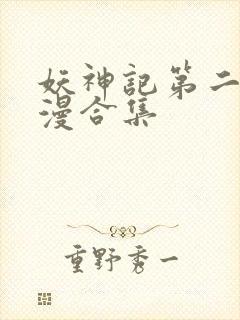 妖神記第二
漫合集
重野秀一